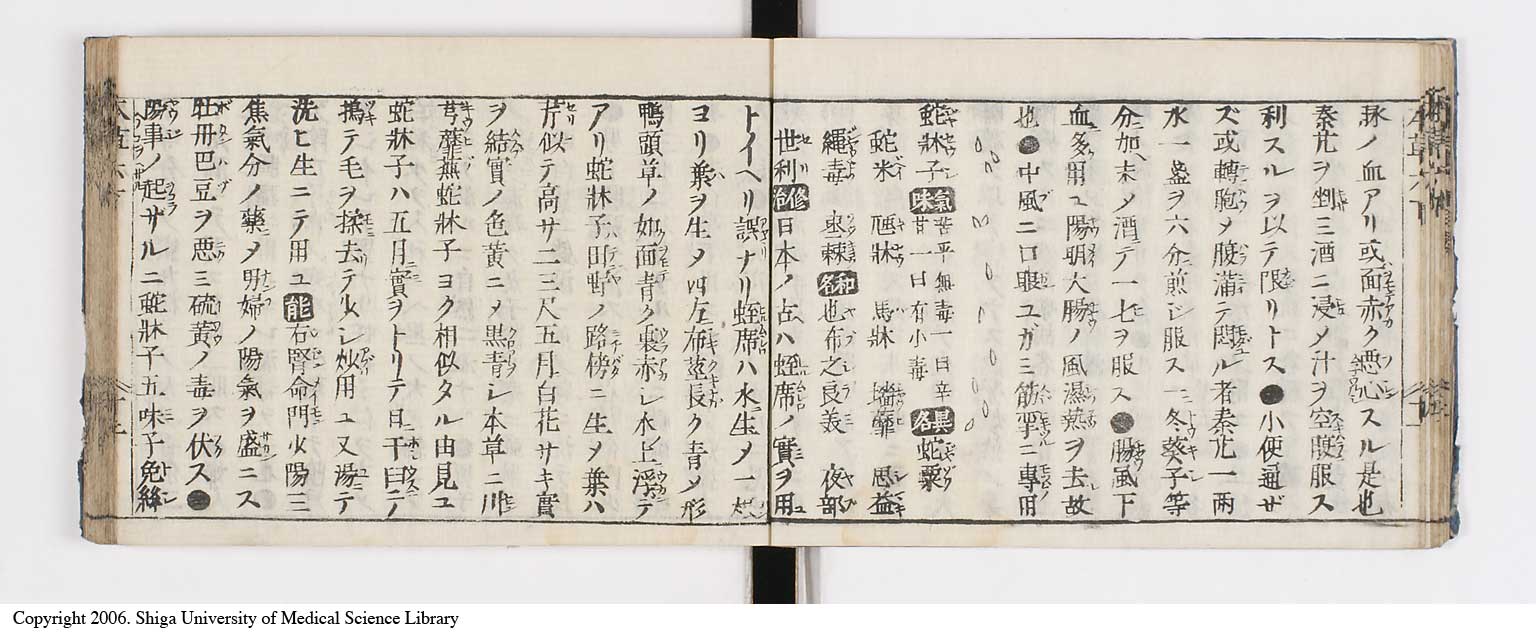 脉ノ血アリ或面赤ク悪心スル是也
秦艽ヲ剉ミ酒ニ浸メ汁ヲ空腹服ス
利スルヲ以テ限リトス●小便通ザ
ズ或轉胞メ腹満テ悶ル者秦艽一両
水一盞ヲ六分煎シ服ス一冬葵子等
分加末メ酒テ一七ヲ服ス●腸風下
血多用ユ陽明大腸ノ風濕熱ヲ去故
也●中風ニ口眼ユガミ筋攣ニ專用
蛇牀子 氣味 苦平無毒一曰辛甘一曰有小毒 異名 蛇粟
蛇米 虺牀 馬牀 墻蘼 思益
繩毒 棗棘 和名 也布之良美 夜部
世利 修治 日本ノ占ハ蛭席ノ實ヲ用
トイヘリ誤ナリ蛭席ハ水生メ一根
ヨリ葉ヲ生メ四左布莖長ク青メ形
鴨頭草ノ如面青ク裏赤レ水上浮テ
アリ蛇牀子ハ田野ノ路傍ニ生メ葉ハ
芹似テ高サ二三尺五月白花サキ實
ヲ結實ノ色黄ニメ黒青レ本草ニ川
芎蘼蕪蛇牀子ヨク相似タル由見ユ
蛇牀子ハ五月實ヲトリテ日干臼ニテ
搗テ毛ヲ揉去テ火ニ炒用ユ又湯テ
洗ヒ生ニテ用ユ 能 右腎命門火陽三
焦氣分ノ藥メ男婦ノ陽氣ヲ盛ニス
牡丹巴豆ヲ悪ミ硫黄ノ毒ヲ伏ス●
陽事ノ起ザルニ蛇牀子五味子兔絲
Copyright 2006. Shiga University of Medical Science Library